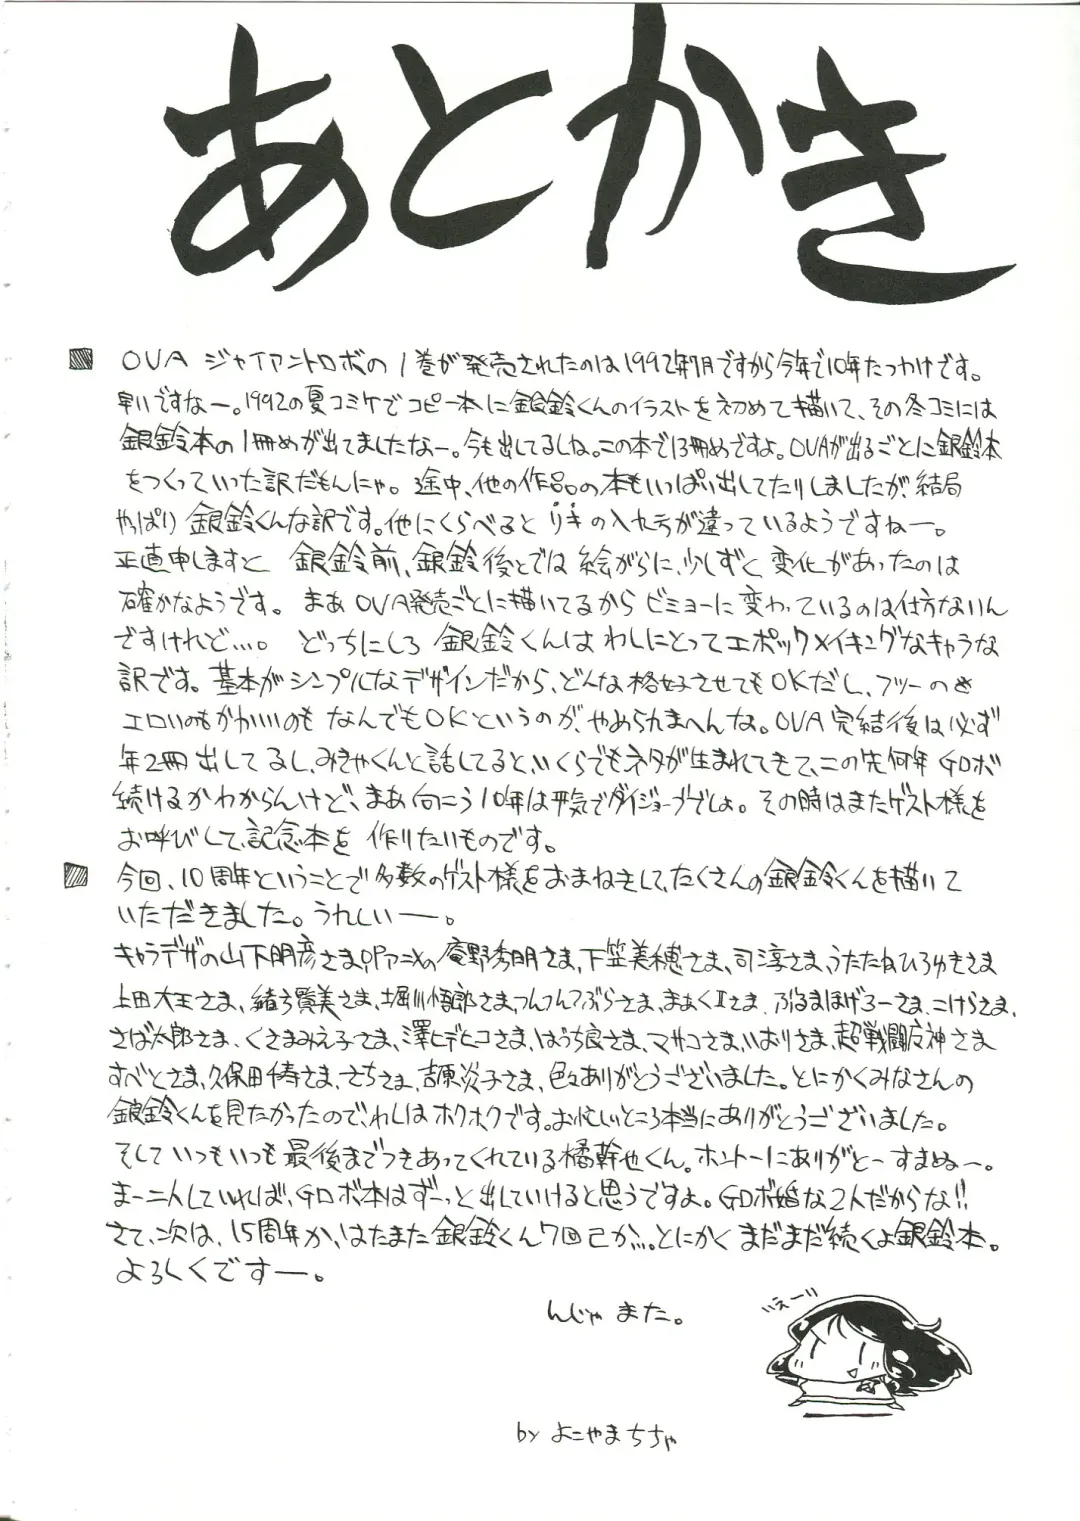 あとかき
OVA ジャイアントロボの1巻が発売されたのは1992年7月ですから今年で10年たつわけです。
早いですなー。1992の夏コミケでコピー本に銀鈴くんのイラストを初めて描いて、その冬コミには
銀鈴本の1冊めが出てましたなー。今も出してるしね。この本で13冊めですよ。OVAが出るごとに銀鈴本
をつくっていった訳だもんにゃ。途中、他の作品の本もいっぱい出してたりしましたが、結局
やっぱり銀鈴くんな訳です。他にくらべるとリキの入れ方が違っているようですねー。
正直申しますと 銀鈴前、銀鈴後とでは絵がらに、少しずつ変化があったのは
確かなようです。まぁOVA発売ごとに描いてるからビミョーに変わっているのは仕方ないん
ですけれど...。どっちにしろ銀鈴くんはわしにとってエポックメイキングなキャラな
訳です。基本がシンプルなデザインだから、どんな格好させてもOKだし、フツーのも
エロいのもかわいいのもなんでもOKというのが、やめられまへんな。OVA完結後は必ず
年2冊出してるし、みきゃくんと話してると、いくらでもネタが生まれてきて、この先何年Gロボ
続けるかわからんけど、まあ向こう10年は平気でダイジョーブでしょ。その時はまたゲスト様を
お呼びして、記念本を作りたいものです。
今回、10周年ということで多数のゲスト様をおまねきして、たくさんの銀鈴くんを描いて
いただきました。うれしいー。
キャラデザの山下明彦さま、アニメの庵野秀明さま、下笠美穂さま、司淳さま、うたたねひろゆきさま
上田大王さま、緒方賢美さま、堀川悟郎さま、つんつんつぶらさま、まぁくIIさま、ぶるまほげろーさま、こけらさま、
さば太郎さま、くさまみえ子さま、澤ヒデヒコさま、ほうち良さま、マサコさま、いおりさま、超戦闘反神さま
すべとさま、久保田侍さま、さちさま、吉東炎子さま、色々ありがとうございました。とにかくみなさんの
銀鈴くんを見たかったので、わしはホクホクです。お忙しいところ本当にありがとうございました。
そしていつもいつも最後までつきあってくれている橘幹也くん。ホントーにありがとーすまぬー。
まー二人していれば、Gロボ本はずーっと出していけると思うですよ。Gロボ婚な2人だからな!!
さて、次は、15周年か、はたまた銀鈴くん7回忌か...。とにかくまだまだ続くよ銀鈴本。
よろしくですー。
んじゃまた。
えー
by よこやまちちゃ